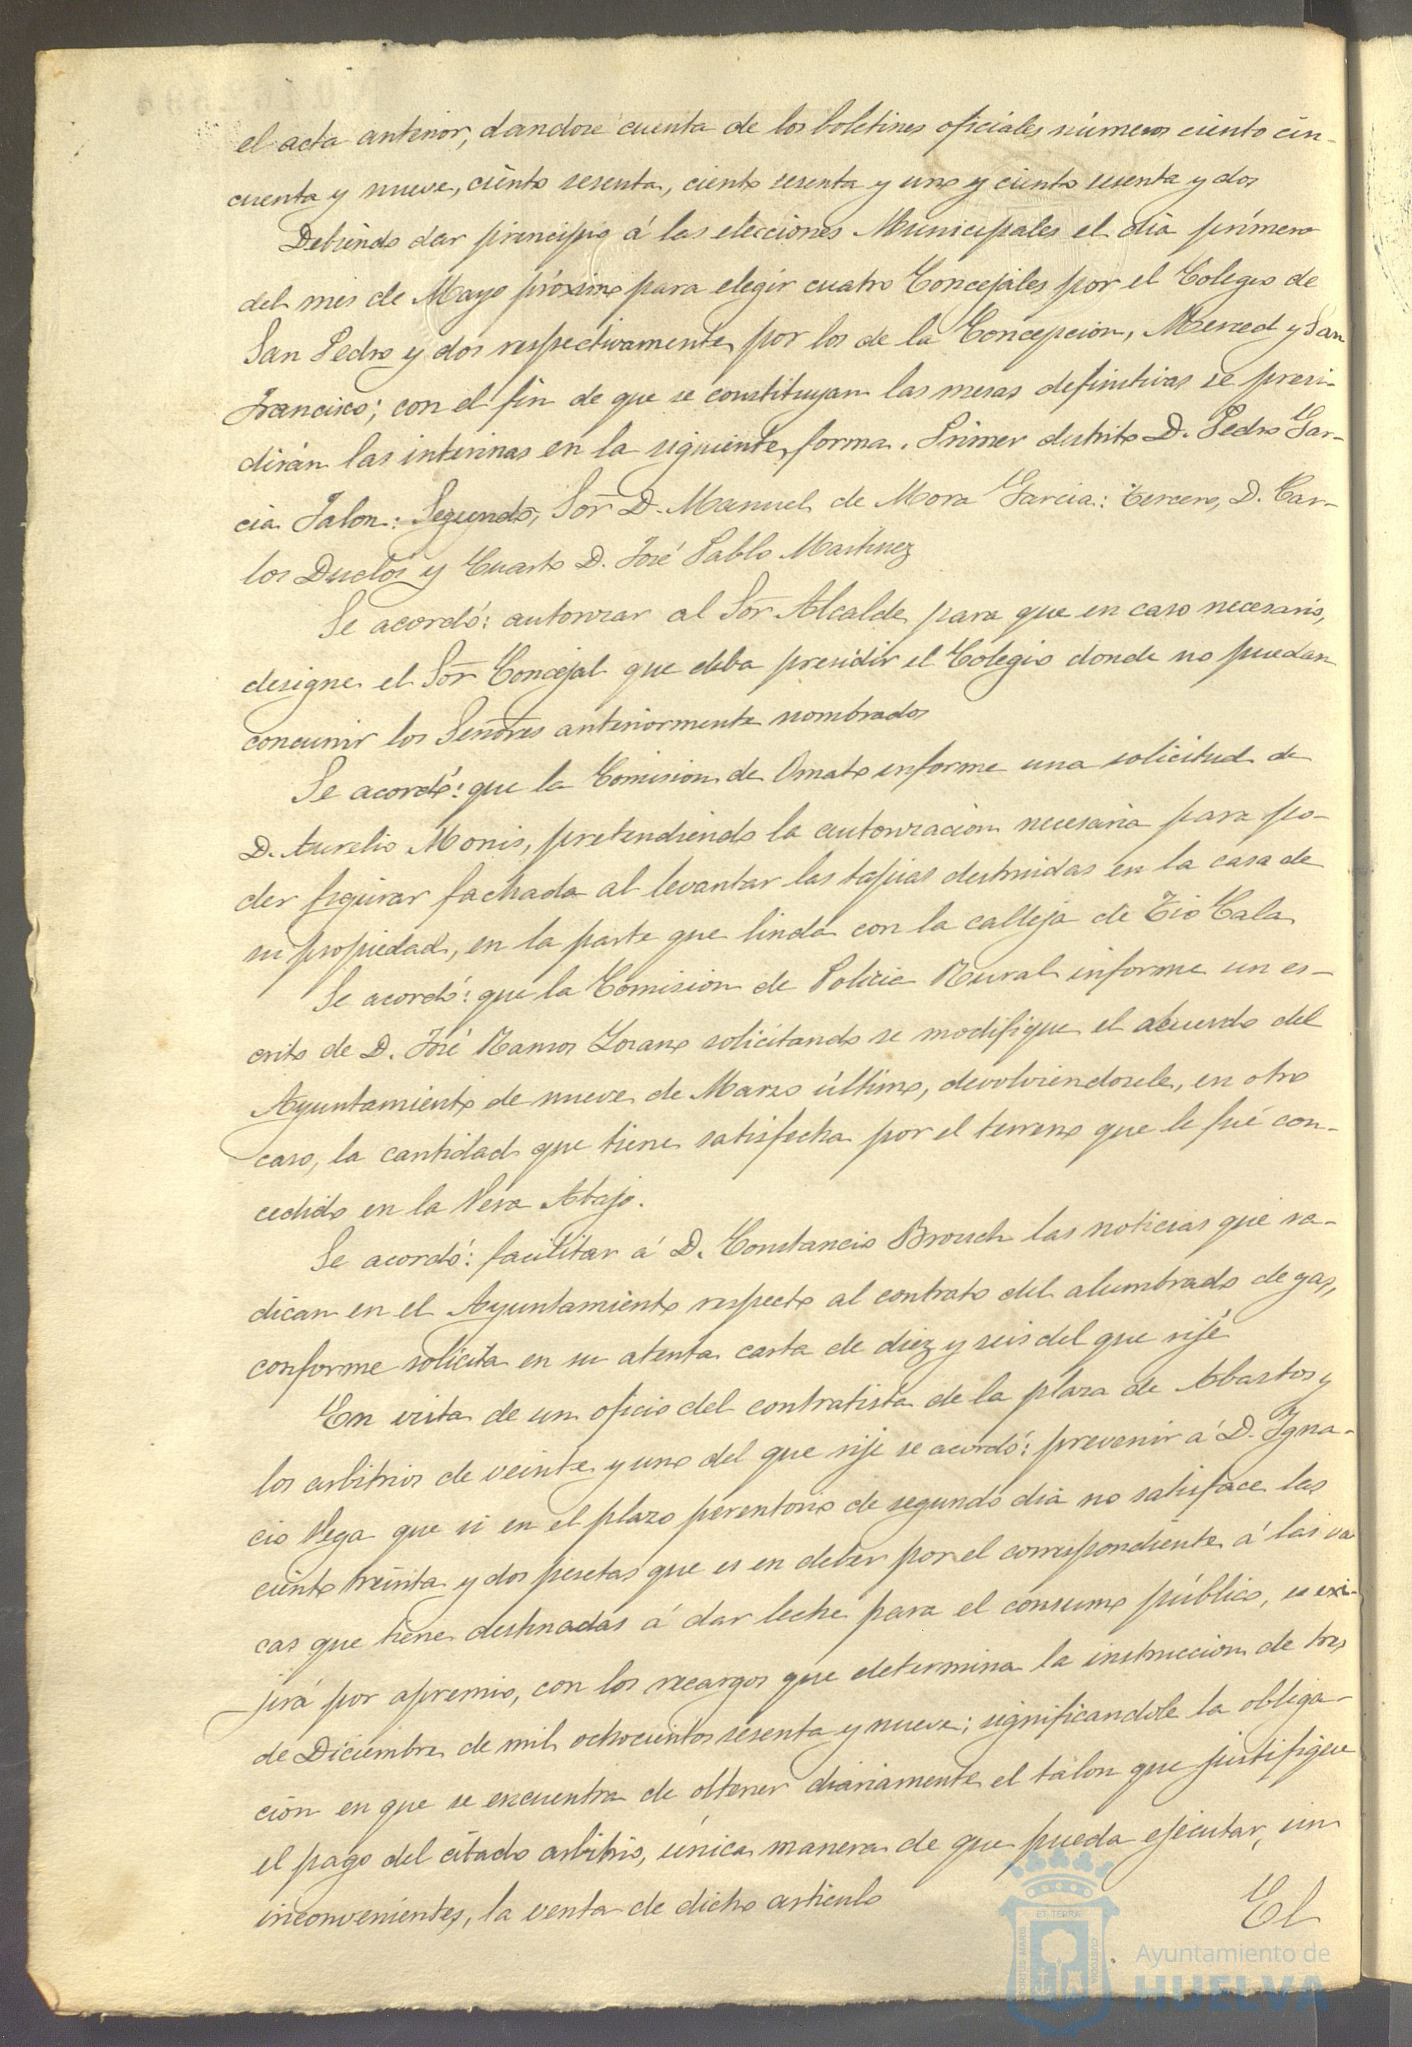 el acta anterior, dandose cuenta de los boletines oficiales números ciento cin-
cuenta y nueve, ciento sesenta, ciento sesenta y uno y ciento sesenta y dos
Debiendo dar principio á las elecciones Municipales el dia primero
del mes de Mayo próximo para elegir cuatro Concejales por el Colegio de
San Pedro y dos respectivamente por los de la Concepcion, Merced y San
Francisco; con el fin de que se constituyan las mesas definitivas se presi-
dirán las interinas en la siguiente forma. Primer distrito D. Pedro Gar-
cia Jalon: Segundo, Sor̃ D. Manuel de Mora Garcia: Tercero, D. Car-
los Duclós y Cuarto D. José Pablo Martinez
Se acordó: autorizar al Sor̃ Alcalde para que en caso necesario,
designe el Sor̃ Concejal que deba presidir el Colegio donde no puedan
concurrir los Señores anteriormente nombrados
Se acordó: que la Comision de Ornato informe una solicitud de
D. Aurelio Monis, pretendiendo la autorizacion necesaria para po-
der figurar fachada al levantar las tapias destruidas en la casa de
su propiedad, en la parte que linda con la calleja de Tio Cala
Se acordó: que la Comision de Policia Rural informe un es-
crito de D. José Ramos Lozano solicitando se modifique el acuerdo del
Ayuntamiento de nueve de Marzo último, devolviendosele, en otro
caso, la cantidad que tiene satisfecha por el terreno que le fué con-
cedido en la Vera Abajo.
Se acordó: facilitar á D. Constancio Brouch las noticias que ra-
dican en el Ayuntamiento respecto al contrato del alumbrado de gas,
conforme solicita en su atenta carta de diez y seis del que rije
En vista de un oficio del contratista de la plaza de Abastos y
los arbitrios de veinte y uno del que rije se acordó: prevenir á D. Igna-
cio Vega que si en el plazo perentorio de segundo dia no satisface las
ciento treinta y dos pesetas que es en deber por el correspondiente á las va
cas que tiene destinadas á dar leche para el consumo público, se exi-
jirá por apremio, con los recargos que determina la instruccion de tres
de Diciembre de mil ochocientos sesenta y nueve; significandole la obliga-
ción en que se encuentra de obtener diariamente el talon que justifique
el pago del citado arbitrio, única manera de que pueda ejecutar, sin
inconvenientes, la venta de dicho articulo
El
Ayuntamiento de
HUELVA